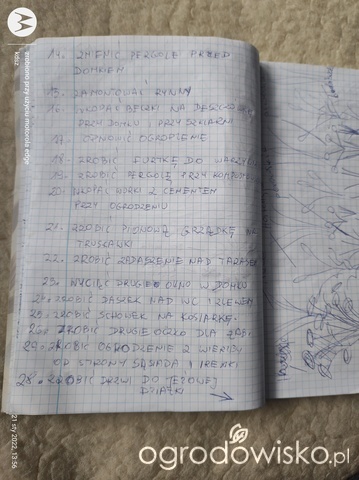 14. ZMIENIĆ PERGOLĘ PRZED
DOMKEM
15. ZAMONTOWAĆ RYNNY
16. WKOPAĆ BECZKI NA DESZCZÓWK
PRZY DOMKU I PRZY SZKLARNI
17. ODNOWIĆ OGRODZENIE
18. ZROBIĆ FURTKĘ DO WARZYW
19. ZROBIĆ PERGOLĘ PRZY KOMPO
20. WKOPAĆ WORKI Z CEMENTEM
PRZY OGRODZENIU
21. ZROBIĆ PIONOWĄ GRZĄDKĘ NA
TRUSKAWKI
22. ZROBIĆ ZADASZENIE NAD TARASEM
23. WYCIĄĆ DRUGIE OKNO W DOMKU
24. ZROBIĆ DASZEK NAD WC I ZLEWEM
25. ZROBIĆ SCHOWEK NA KOSIARKĘ
26. ZROBIĆ DRUGIE OCZKO DLA ŻAB
27. ZROBIĆ OGRODZENIE Z WIERZBY
OD STRONY SĄSIADA I IRENKI
28. ZROBIĆ DRZWI DO
DZIAŁKI
zrobiono przy użyciu motorola edge
kasz
21 sty 2022, 13:56
ogrodowisko.pl